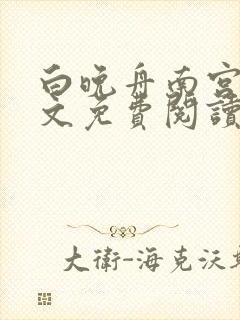 白晚舟南宫
文免費閱讀
大衛-海克沃